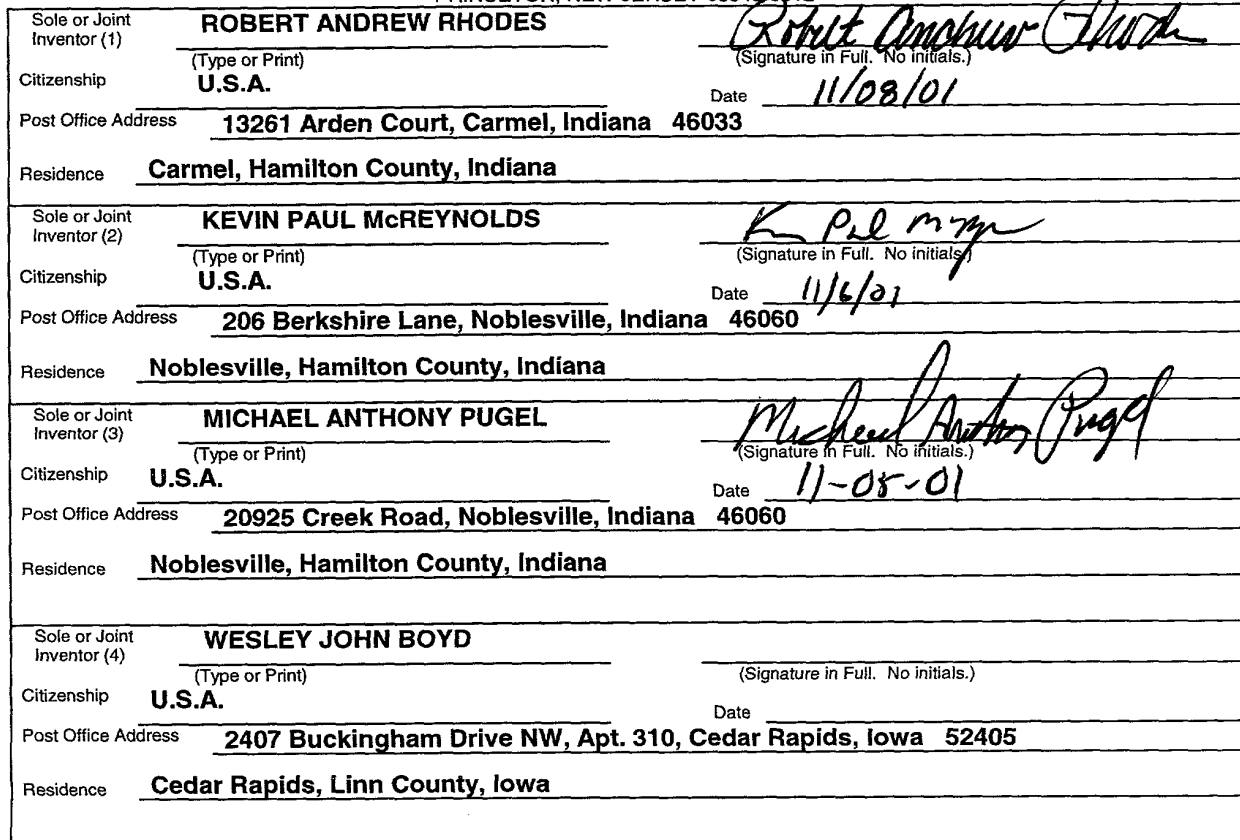 Sole or Joint Inventor (1) ROBERT ANDREW RHODES Robert Andrew Rhodes
(Type or Print) (Signature in Full. No initials.)
Citizenship U.S.A. Date 11/08/01
Post Office Address 13261 Arden Court, Carmel, Indiana 46033
Residence Carmel, Hamilton County, Indiana
Sole or Joint Inventor (2) KEVIN PAUL McREYNOLDS
(Type or Print) (Signature in Full. No initials.)
Citizenship U.S.A. Date 11/6/01
Post Office Address 206 Berkshire Lane, Noblesville, Indiana 46060
Residence Noblesville, Hamilton County, Indiana
Sole or Joint Inventor (3) MICHAEL ANTHONY PUGEL Michael Anthony Pugel
(Type or Print) (Signature in Full. No initials.)
Citizenship U.S.A. Date 11-05-01
Post Office Address 20925 Creek Road, Noblesville, Indiana 46060
Residence Noblesville, Hamilton County, Indiana
Sole or Joint Inventor (4) WESLEY JOHN BOYD
(Type or Print) (Signature in Full. No initials.)
Citizenship U.S.A. Date
Post Office Address 2407 Buckingham Drive NW, Apt. 310, Cedar Rapids, Iowa 52405
Residence Cedar Rapids, Linn County, Iowa